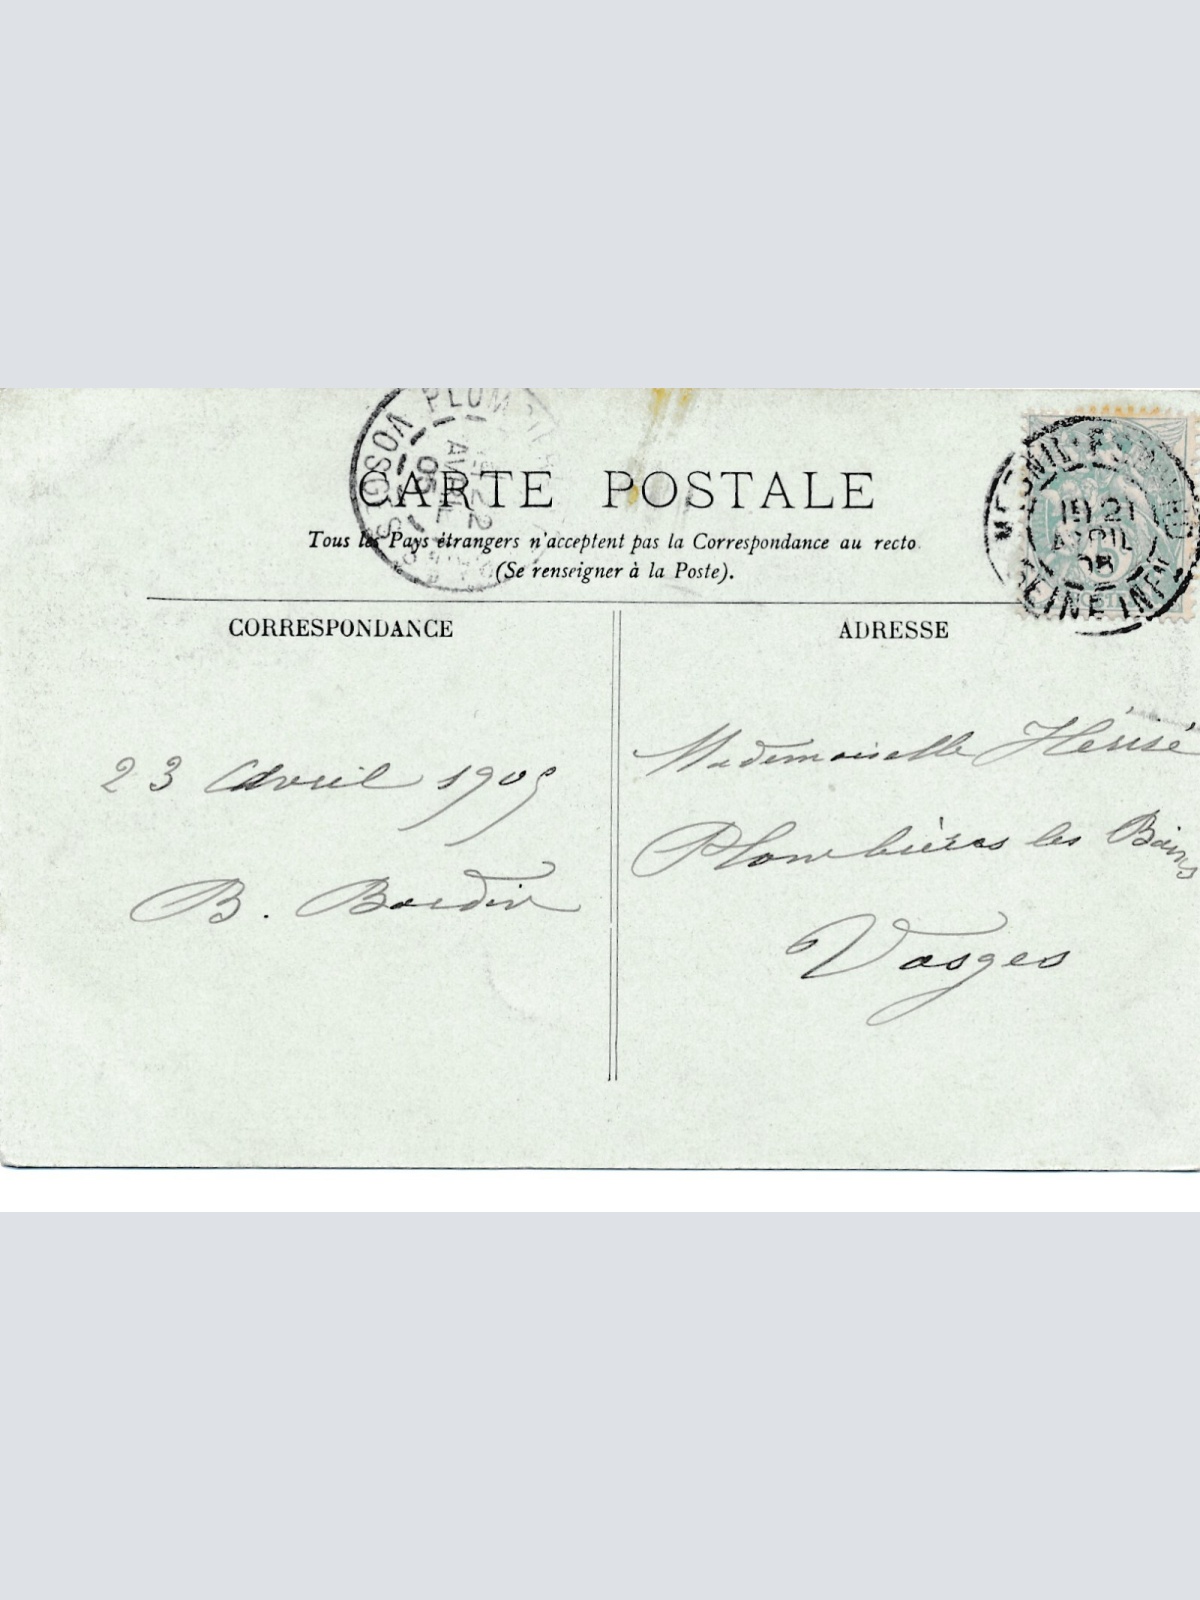 PLOM
VOSGES
22
AVRIL
05
CARTE POSTALE
Tous les Pays étrangers n'acceptent pas la Correspondance au recto
(Se renseigner à la Poste).
21
AVRIL
05
SEINE INFRE
CORRESPONDANCE
ADRESSE
23 Avril 1905
B. Bordin
Mademoiselle Hérisé
Plombières les Bains
Vosges